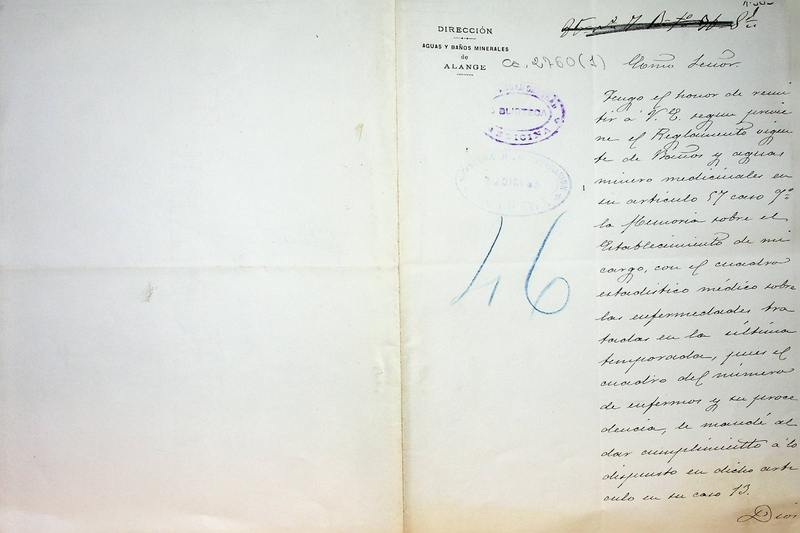 DIRECCIÓN
AGUAS Y BAÑOS MINERALES
de
ALANGE
Ca. 2760 (1)
BLIOTECA
MEDICINA
46
Señor.
Tengo el honor de remi
tir à V. E. segun previe
ne el Reglamento vigen
te de Baños y aguas
minero medicinales en
su articulo 57 caso 9º
la Memoria sobre el
Establecimiento de mi
cargo, con el cuadro
estadistico médico sobre
las enfermedades tra
tadas en la última
temporada, pues el
cuadro del número
de enfermos y su proce
dencia, le mandé al
dar cumplimiento á lo
dispuesto en dicho arti
culo en su caso 13.